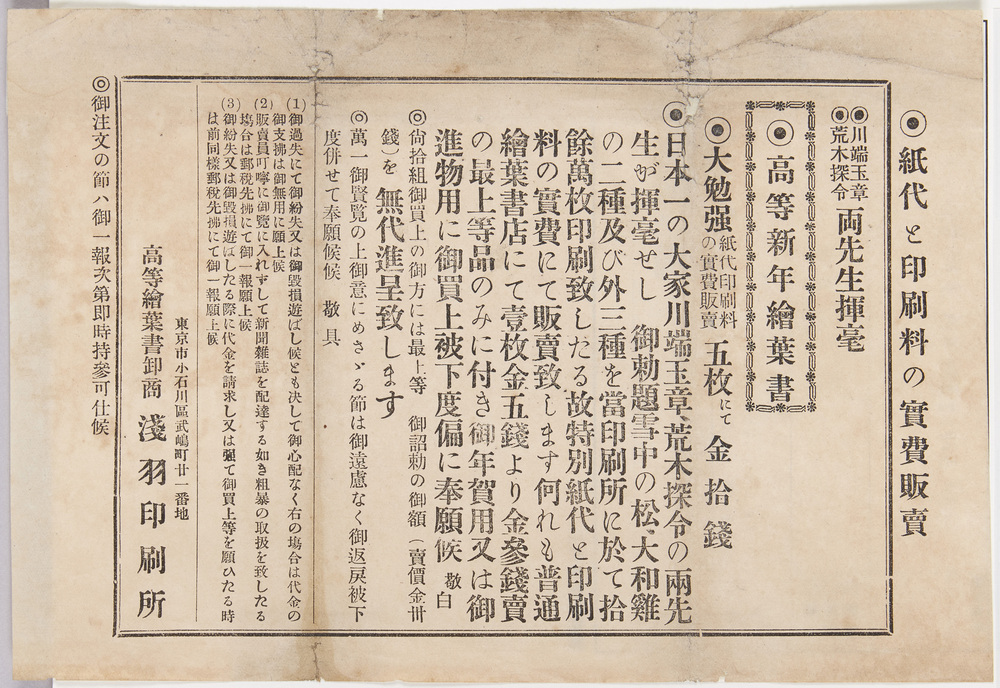 ◉紙代と印刷料の實費販賣
◉川端玉章
◉荒木探令
両先生揮毫
◉高等新年繪葉書
◉大勉强紙代印刷料の實費販賣五枚にて金拾錢
◉日本一の大家川端玉章荒木探令の兩先
生が揮毫せし 御勅題雪中の松、大和雞
の二種及び外三種を當印刷所に於て拾
餘萬枚印刷致したる故特別紙代と印刷
料の實費にて販賣致します何れも普通
繪葉書店にて壹枚金五錢より金參錢賣
の最上等品のみに付き御年賀用又は御
進物用に御買上被下度偏に奉願候 敬白
◎尙拾組御買上の御方には最上等 御詔勅の御額(賣價金卅
錢)を 無代進呈致します
◎萬一御賢覧の上御意にめさゞる節は御遠慮なく御返戻被下
度併せて奉願候 敬具
(1)御過失にて御紛失又は御毀損遊ばし候とも决して御心配なく右の塲合は代金の
御支拂は御無用に願上候
(2)販賣員叮嚀に御覽に入れずして新聞雜誌を配達する如き粗暴の取扱を致したる
塲合は郵税先拂にて御一報願上候
(3)御紛失又は御毀損遊ばしたる際に代金を請求し又は强て御買上等を願ひたる時
は前同樣郵税先拂にて御一報願上候
東京市小石川區武嶋町廿一番地
高等繪葉書卸商 淺羽印刷所
◎御注文の節ハ御一報次第即時持參可仕候